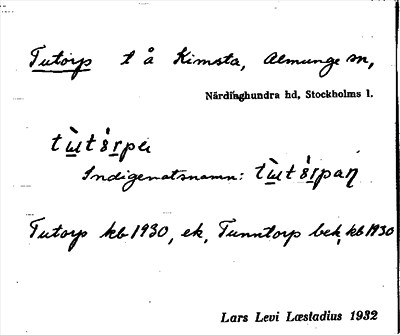 Tutorp t å Kimsta, Almunge sn,
Närdinghundra hd, Stockholms l.
Indigenatsnamn:
Tutorp kb 1930, ek, Tunntorp bek, kb 1930
Lars Levi Læstadius 1932